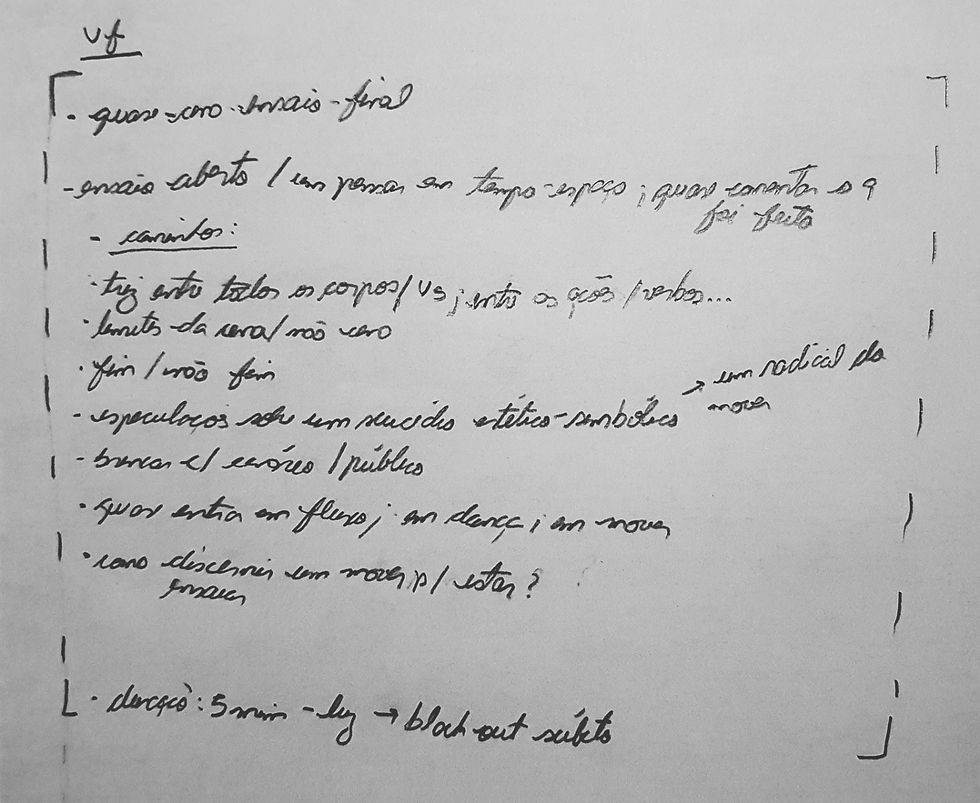 vf
· quase-cena-ensaio-final
- ensaio aberto / um pensar em tempo-espaço ; quase comentar o q
foi feito
- caminhos:
· luz entre todos os corpos/ vs ; entre as ações / verbos...
· limites da cena/ não cena
· fim / não fim
- especulações sobre um suicídio estético-simbólico → um radical do
mover
- brincar c/ cenário / público
· quase entra em fluxo; em dança; em mover
· como discernir um mover p/ estar?
ensaiar
· duração: 5 min - luz → black out súbito